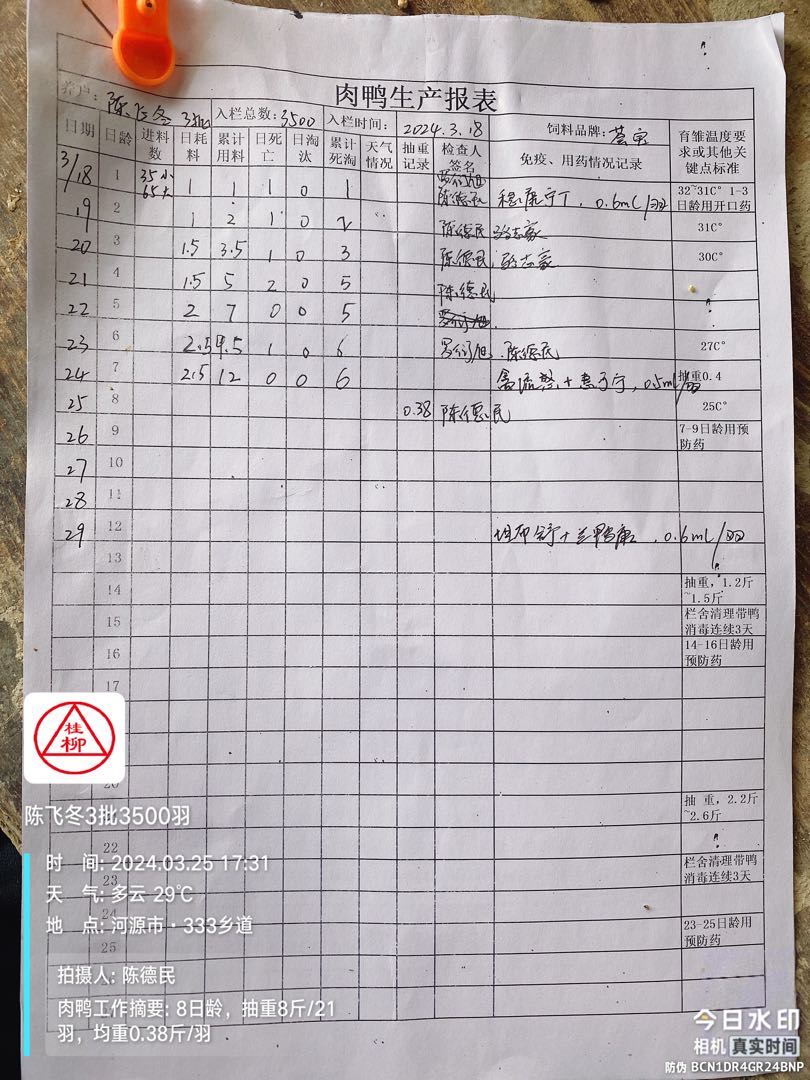 肉鸭生产报表
养户: 陈飞冬 3批 入栏总数: 3500 入栏时间: 2024.3.18 饲料品牌:
日期 日龄 进料数 日耗料 累计用料 日死亡 日淘汰 累计死淘 天气情况 抽重记录 检查人签名 免疫、用药情况记录 育雏温度要求或其他关键点标准
3/18 1 35小 65大 1 1 1 0 1 陈德民 0.6mL/羽 32~31C° 1-3日龄用开口药
19 2 1 2 1 0 2 陈德民 31C°
20 3 1.5 3.5 1 0 3 陈德民 30C°
21 4 1.5 5 2 0 5 陈德民
22 5 2 7 0 0 5
23 6 2.5 9.5 1 0 6 陈德民 27C°
24 7 2.5 12 0 0 6 0.5mL/羽 抽重0.4
25 8 0.38 陈德民 25C°
26 9 7-9日龄用预防药
27 10
28 11
29 12 0.6mL/羽
13
14 抽重,1.2斤~1.5斤
15 栏舍清理带鸭消毒连续3天
16 14-16日龄用预防药
17
抽 重,2.2斤~2.6斤
22
23 栏舍清理带鸭消毒连续3天
24
25 23-25日龄用预防药
桂柳
陈飞冬3批3500羽
时 间: 2024.03.25 17:31
天 气: 多云 29℃
地 点: 河源市·333乡道
拍摄人: 陈德民
肉鸭工作摘要: 8日龄，抽重8斤/21
羽，均重0.38斤/羽
今日水印
相机 真实时间
防伪 BCN1DR4GR24BNP